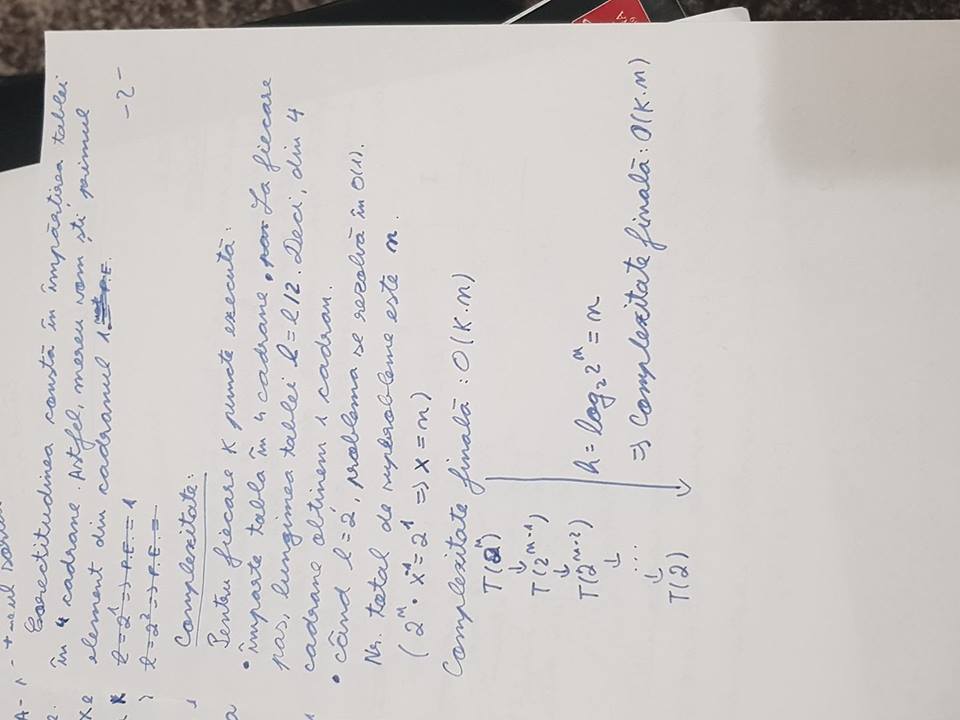 Corectitudinea constă în împărțirea tablei
în 4 cadrane. Astfel, mereu vom ști primul
element din cadranul 1. not P.E.
-2-
l = 2^1 => P.E. = 1
l = 2^2 => P.E. =
Complexitate:
Pentru fiecare K puncte execută:
• împarte tabla în 4 cadrane. La fiecare
pas, lungimea tablei l = l/2. Deci, din 4
cadrane obținem 1 cadran.
• când l = 2^1, problema se rezolvă în O(1).
Nr. total de este n.
(2^n · x^-1 = 2^1 => x = n)
Complexitate finală : O(K·n)
T(2^n)
↓
T(2^n-1)
↓
T(2^n-2)
↓
...
↓
T(2)
h = log₂ 2^n = n
=> Complexitate finală : O(K·n)